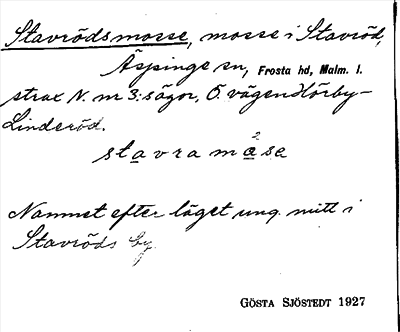 Stavrödsmosse, mosse i Stavröd,
Äspinge sn, Frosta hd, Malm. l.
strax N. om 3: sågor, Ö. vägen Hörby-
Linderöd.
stavramåse
Namnet efter läget ung. mitt i
Stavröds by.
GÖSTA SJÖSTEDT 1927